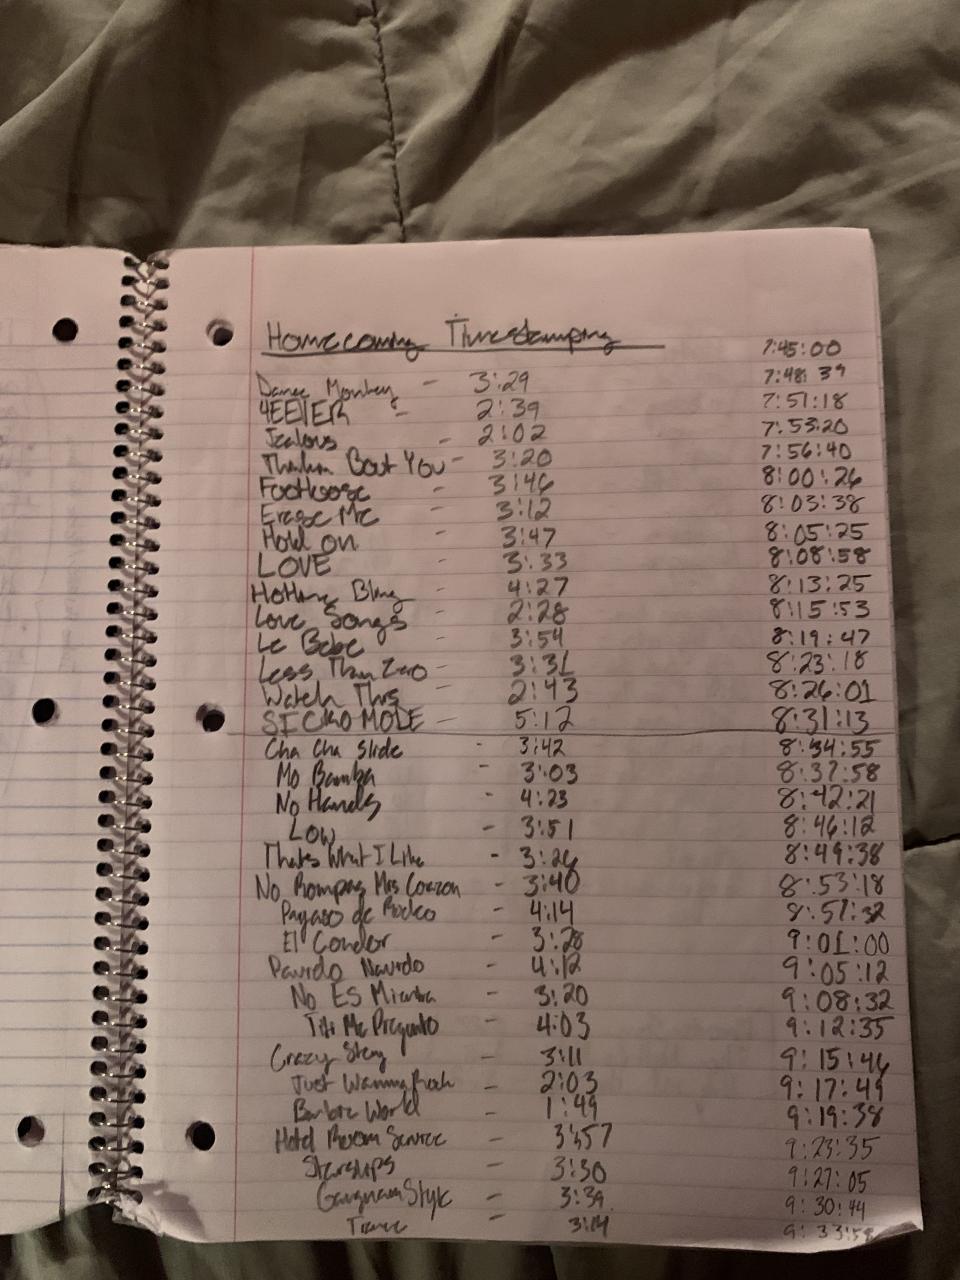 Homecoming Timestamping 7:45:00
Dance Monkey - 3:29 7:48:39
4EEVER - 2:39 7:51:18
Jealous - 2:02 7:53:20
Thinkin Bout You - 3:20 7:56:40
Footloose - 3:46 8:00:26
Erase Me - 3:12 8:03:38
Hold on - 3:47 8:05:25
LOVE - 3:33 8:08:58
Hotline Bling - 4:27 8:13:25
Love Songs - 2:28 8:15:53
Le Bebe - 3:54 8:19:47
Less Than Zero - 3:31 8:23:18
Watch This - 2:43 8:26:01
SICKO MODE - 5:12 8:31:13
Cha Cha Slide - 3:42 8:34:55
Mo Bamba - 3:03 8:37:58
No Hands - 4:23 8:42:21
Low - 3:51 8:46:12
Thats What I Like - 3:26 8:49:38
No Rompas Mis Corazon - 3:40 8:53:18
Payaso de Rodeo - 4:14 8:57:32
El Condor - 3:28 9:01:00
Pavido Navido - 4:12 9:05:12
No Es Mi - 3:20 9:08:32
Titi Me Pregunto - 4:03 9:12:35
Crazy Story - 3:11 9:15:46
Just Wanna Rock - 2:03 9:17:49
Barbie World - 1:49 9:19:38
Hotel Room Service - 3:57 9:23:35
Starships - 3:30 9:27:05
Gangnam Style - 3:39 9:30:44
- 3:14 9:33:58